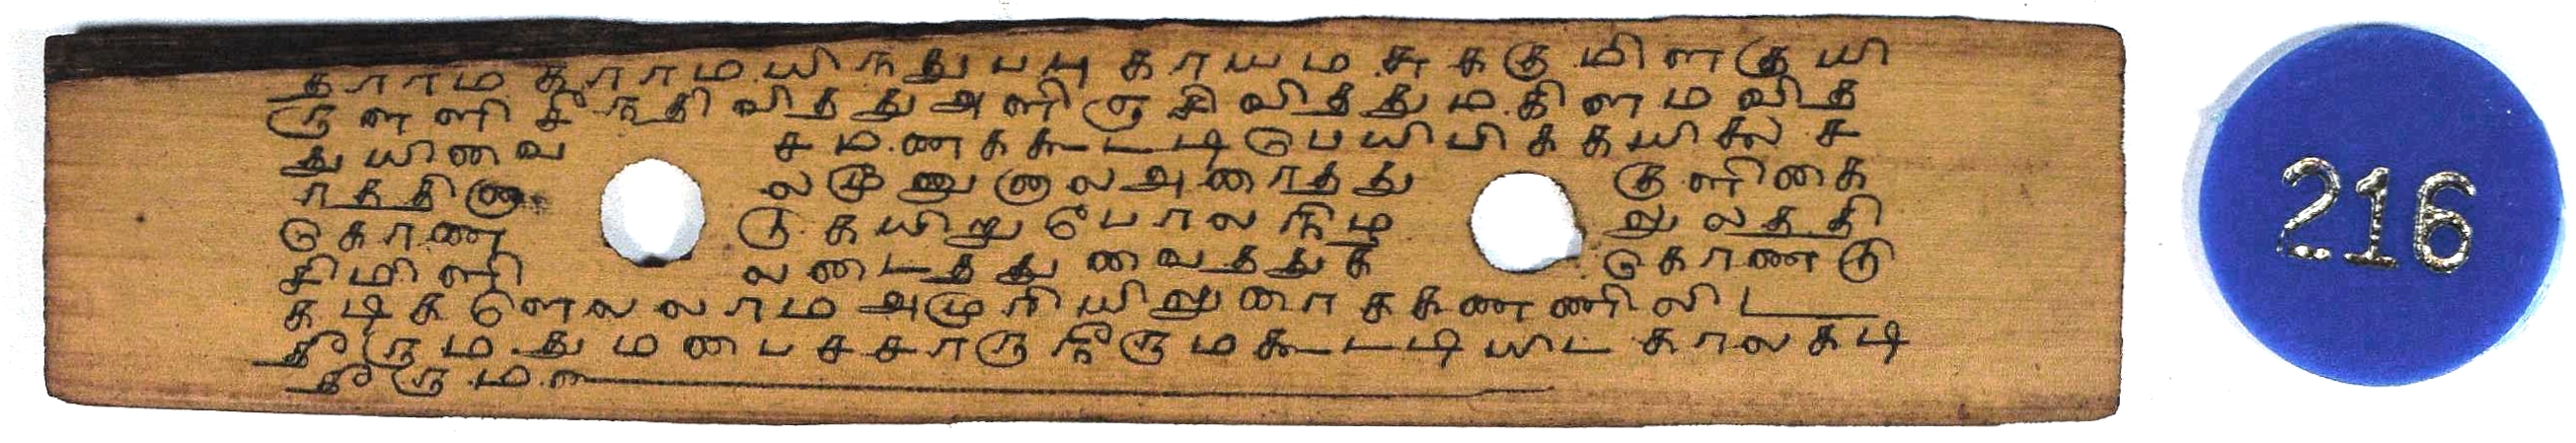 தாரம காராம யிநதுபபு காயம சுககு மிளகு யி
ருளளி சிநதி வித்து அளிஞசி விதது ம.கிளம வித
து யிவை சம.ணகக கூடடி பெயிபிககயிலை ச
ாததிஞ லமூணு ஞாலஅரைதது குளிகை
கொண டு.கயிறு போல நிழ லுலததி
சிமிளி லடைதது வைததுக கொணடு
கடிகளெலலாம அமுரியிலுரைசகண்ணிலிட
தீரும.துமபைசசாருநீருமகூடடியிட காலகடி
தீரும.
216